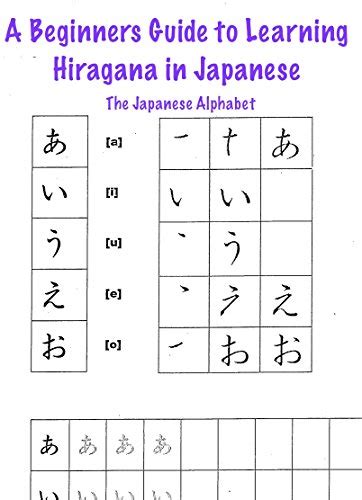 A Beginners Guide to Learning
Hiragana in Japanese
The Japanese Alphabet
あ [a] 一 あ
い [i] い
う [u] う
え [e] え
お [o] お お
あ あ あ あ
い い い い